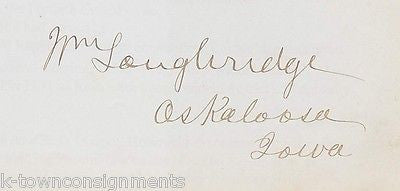 Wm Loughridge
Oskaloosa
Iowa
k-townconsignments